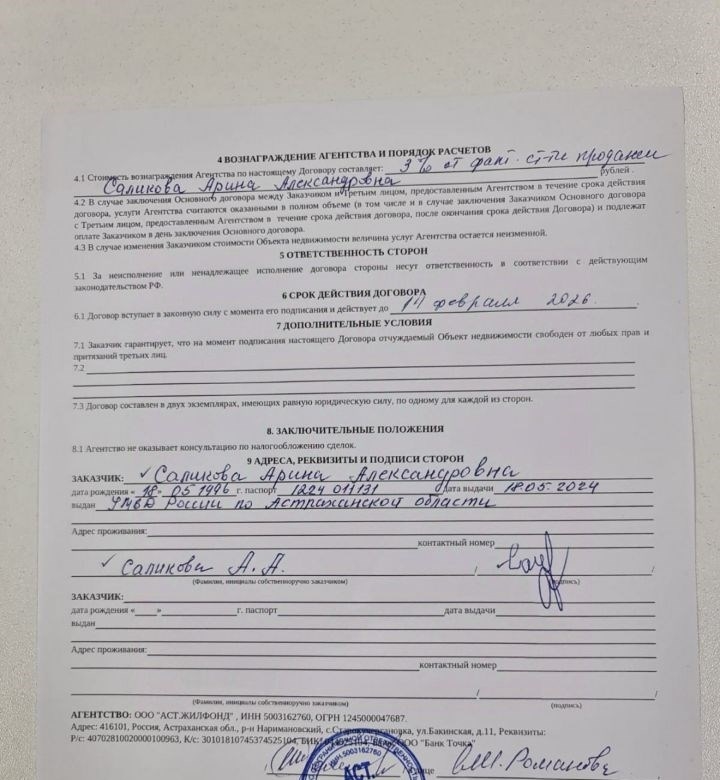 4 ВОЗНАГРАЖДЕНИЕ АГЕНТСТВА И ПОРЯДОК РАСЧЕТОВ
4.1 Стоимость вознаграждения Агентства по настоящему Договору составляет: 3% от факт. ст-ти продажи
Саликова Арина Александровна рублей .
4.2 В случае заключения Основного договора между Заказчиком и Третьим лицом, предоставленным Агентством в течение срока действия
договора, услуги Агентства считаются оказанными в полном объеме (в том числе и в случае заключения Заказчиком Основного договора
с Третьим лицом, предоставленным Агентством в течение срока действия договора, после окончания срока действия Договора) и подлежат
оплате Заказчиком в день заключения Основного договора.
4.3 В случае изменения Заказчиком стоимости Объекта недвижимости величина услуг Агентства остается неизменной.
5 ОТВЕТСТВЕННОСТЬ СТОРОН
5.1 За неисполнение или ненадлежащее исполнение договора стороны несут ответственность в соответствии с действующим
законодательством РФ.
6 СРОК ДЕЙСТВИЯ ДОГОВОРА
6.1 Договор вступает в законную силу с момента его подписания и действует до февраля 2026.
7 ДОПОЛНИТЕЛЬНЫЕ УСЛОВИЯ
7.1 Заказчик гарантирует, что на момент подписания настоящего Договора отчуждаемый Объект недвижимости свободен от любых прав и
притязаний третьих лиц.
7.2
7.3 Договор составлен в двух экземплярах, имеющих равную юридическую силу, по одному для каждой из сторон.
8. ЗАКЛЮЧИТЕЛЬНЫЕ ПОЛОЖЕНИЯ
8.1 Агентство не оказывает консультацию по налогообложению сделок.
9 АДРЕСА, РЕКВИЗИТЫ И ПОДПИСИ СТОРОН
ЗАКАЗЧИК: Саликова Арина Александровна
дата рождения « 18 » 05 1996 г. паспорт 1224 011131 дата выдачи 18.05.2024
выдан УМВД России по Астраханской области
Адрес проживания:
контактный номер
Саликова А.А. / /
(Фамилия, инициалы собственноручно заказчиком) (подпись)
ЗАКАЗЧИК:
дата рождения « » г. паспорт дата выдачи
выдан
Адрес проживания:
контактный номер
/ /
(Фамилия, инициалы собственноручно заказчиком) (подпись)
АГЕНТСТВО: ООО "АСТ.ЖИЛФОНД" , ИНН 5003162760, ОГРН 1245000047687.
Адрес: 416101, Россия, Астраханская обл., р-н Наримановский, с.Старокучергановка, ул.Бакинская, д.11, Реквизиты:
Р/с: 40702810020000100963, К/с: 30101810745374525104, ООО "Банк Точка"
ИНН 5003162760
АСТ.
лице Романова